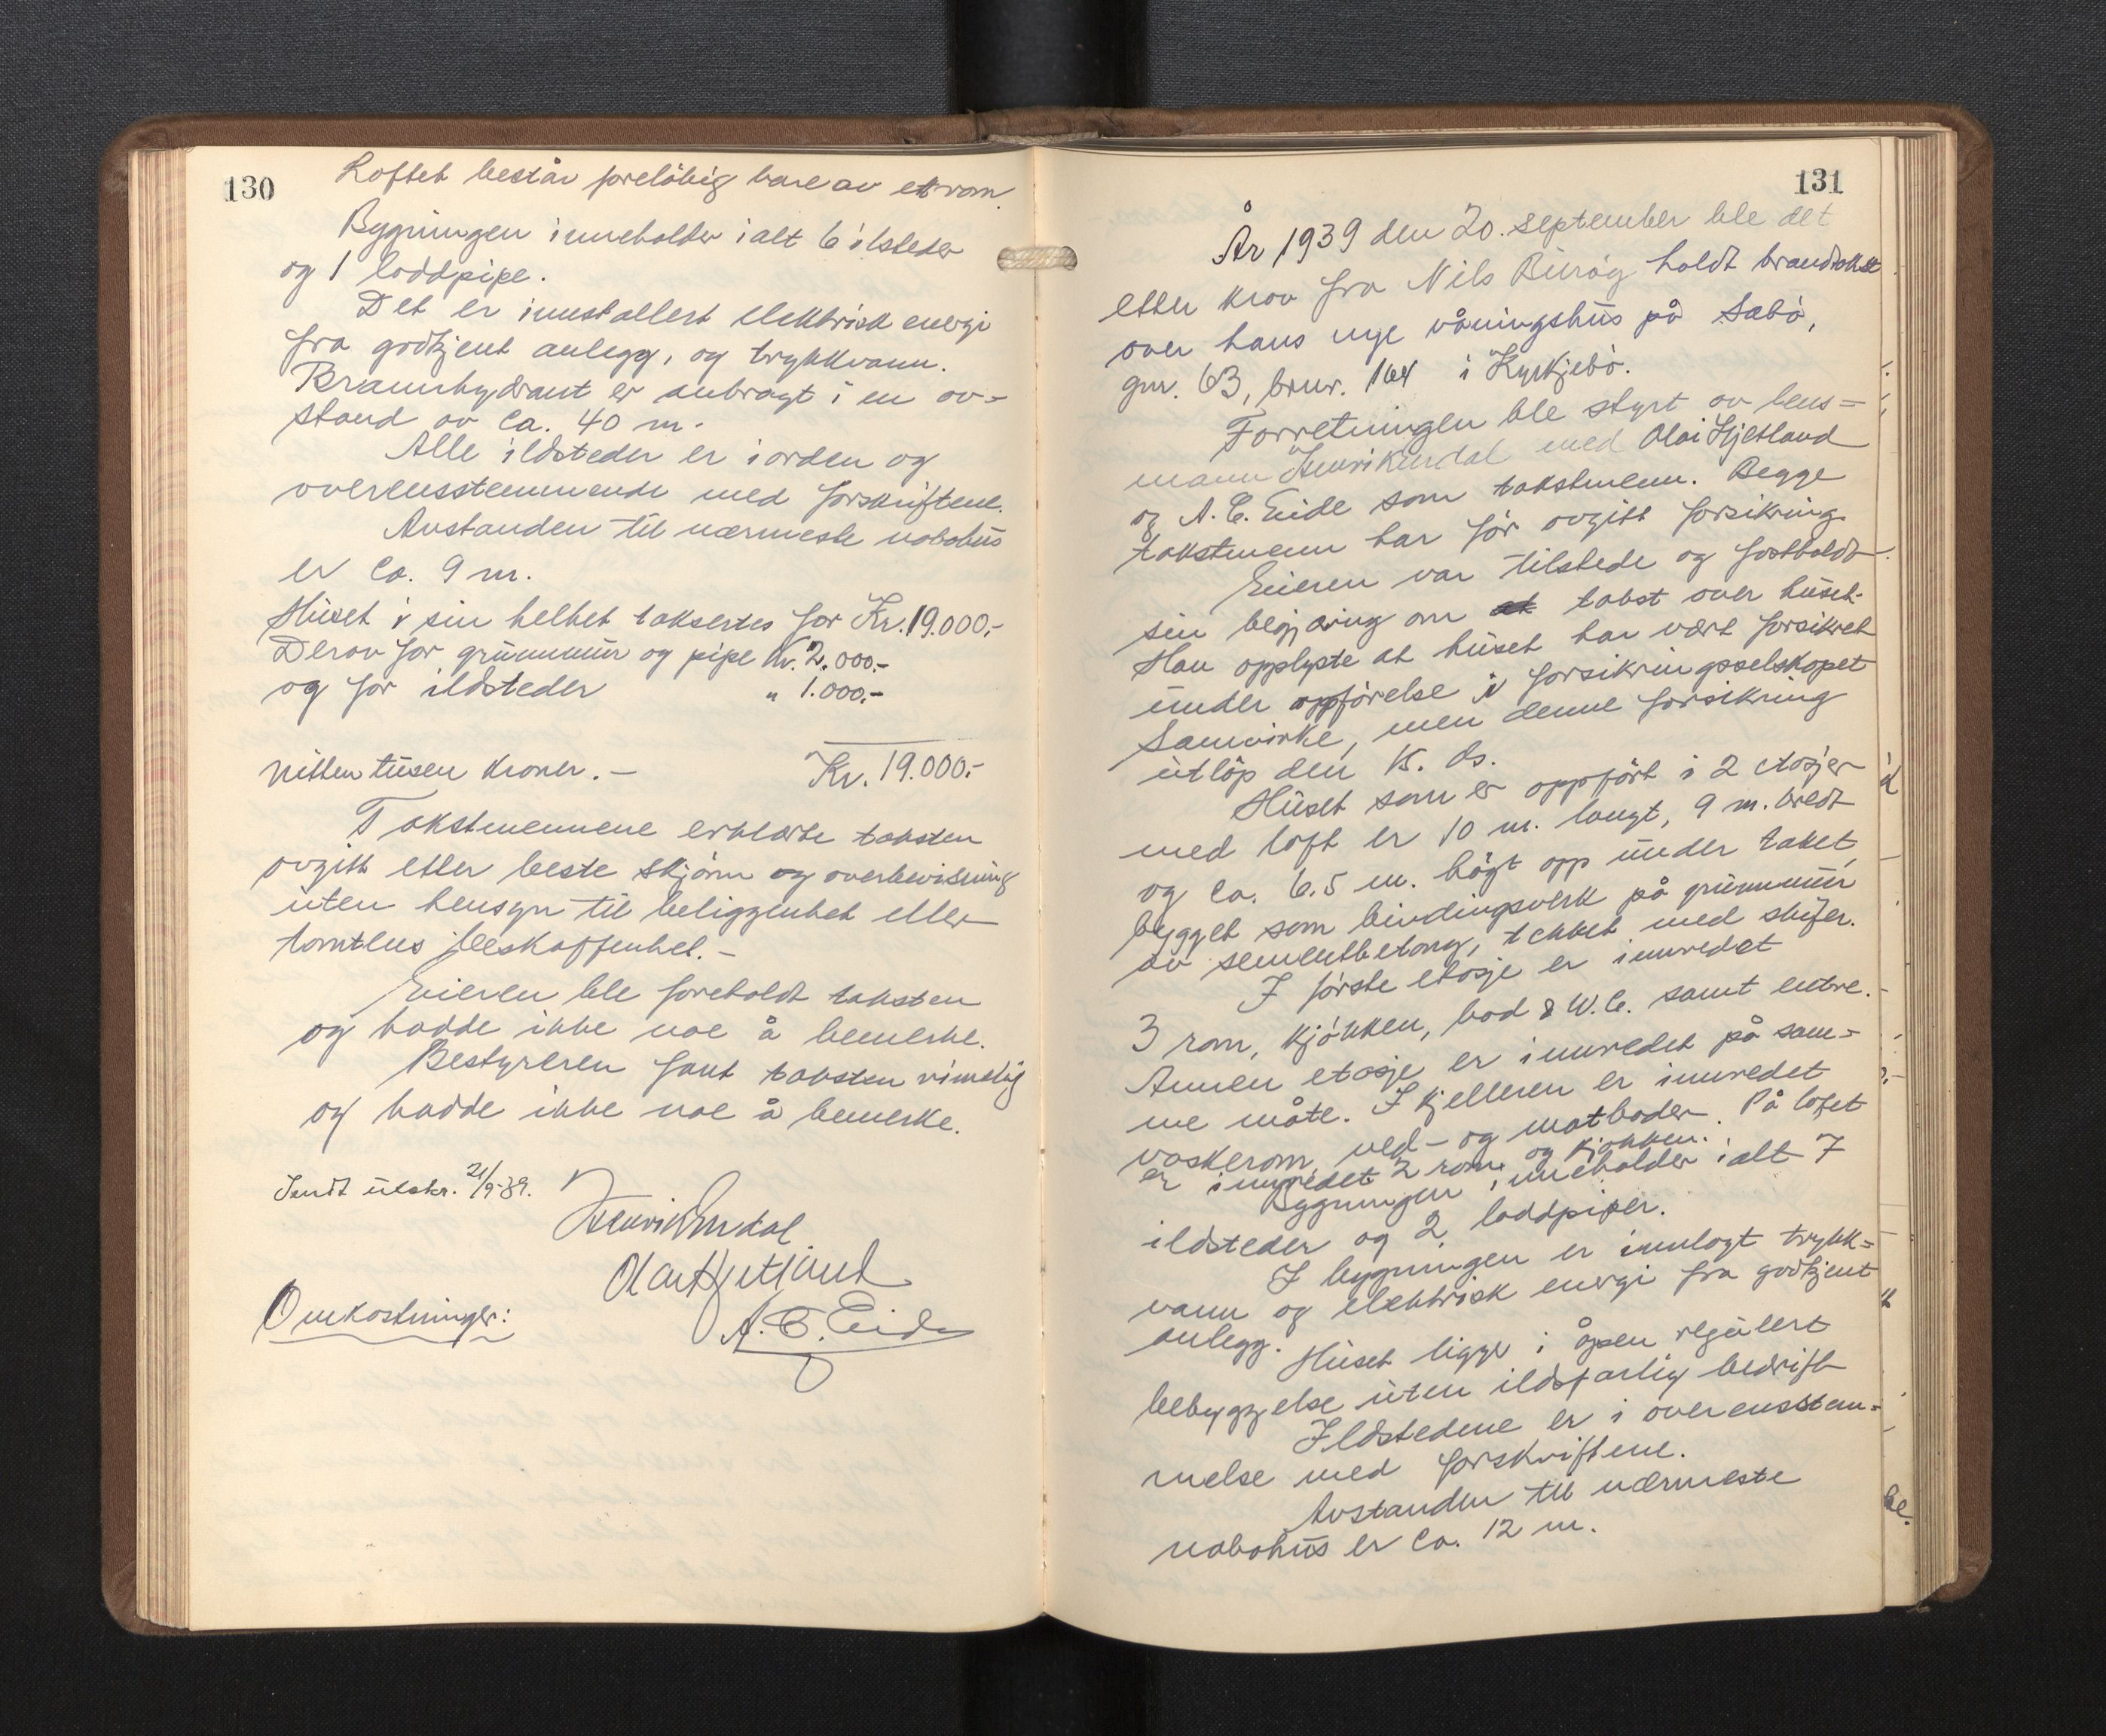 130
Loftet består foreløbig bare av et rom.
Bygningen inneholder i alt 6 ilsteder
og 1 loddpipe.
Det er innstallert elektrisk energi
fra godkjent anlegg, og trykkvann.
Brannhydrant er anbragt i en av-
stand av ca. 40 m.
Alle ildsteder er i orden og
overensstemmende med forskriftene.
Avstanden til nærmeste nabohus
er ca. 9 m.
Huset i sin helhet taksertes for Kr. 19.000,-
Derav for grunnmur og pipe Kr. 2.000.-
og for ildsteder " 1.000.-
nitten tusen kroner. - Kr. 19.000.-
Takstmennene erklærte taksten
avgitt etter beste skjønn og overbevisning
uten hensyn til beliggenhet eller
tomtens beskaffenhet. -
Eieren ble foreholdt taksten
og hadde ikke noe å bemerke.
Bestyreren fant taksten rimelig
og hadde ikke noe å bemerke.
Sendt utskr. 21/9-39.
Henrik Endal
Olai Hjetland
A. C. Eide
Omkostninger:
131
År 1939 den 20. september ble det
etter krav fra Nils holdt brandtakst
over hans nye våningshus på Sabø,
gnr. 63, brnr. 164 i Kyrkjebø.
Forretningen ble styrt av lens=
mann Henrik Endal med Olai Hjetland
og A. C. Eide som takstmenn. Begge
takstmenn har før avgitt forsikring.
Eieren var tilstede og fastholdt
sin begjæring om takst over huset.
Han opplyste at huset har vært forsikret
under oppførelse i forsikringsselskapet
Samvirke, men denne forsikring
utløp den 15. ds.
Huset som er oppført i 2 etasjer
med loft er 10 m. langt, 9 m. bredt
og ca. 6.5 m. høgt opp under taket,
bygget som bindingsverk på grunnmur
av sementbetong, tekket med skifer.
I første etasje er innredet
3 rom, kjøkken, bad & W.C. samt entre.
Annen etasje er innredet på sam-
me måte. I kjelleren er innredet
vaskerom, ved- og matboder. På loftet
er innredet 2 rom og kjøkken.
Bygningen inneholder i alt 7
ildsteder og 2 loddpiper.
I bygningen er innlagt trykk=
vann og elektrisk energi fra godkjent
anlegg.
Huset ligge i åpen regulert
bebyggelse uten ildsfarlig bedrift
Ildstedene er i overensstem=
melse med forskriftene.
Avstanden til nærmeste
nabohus er ca. 12 m.